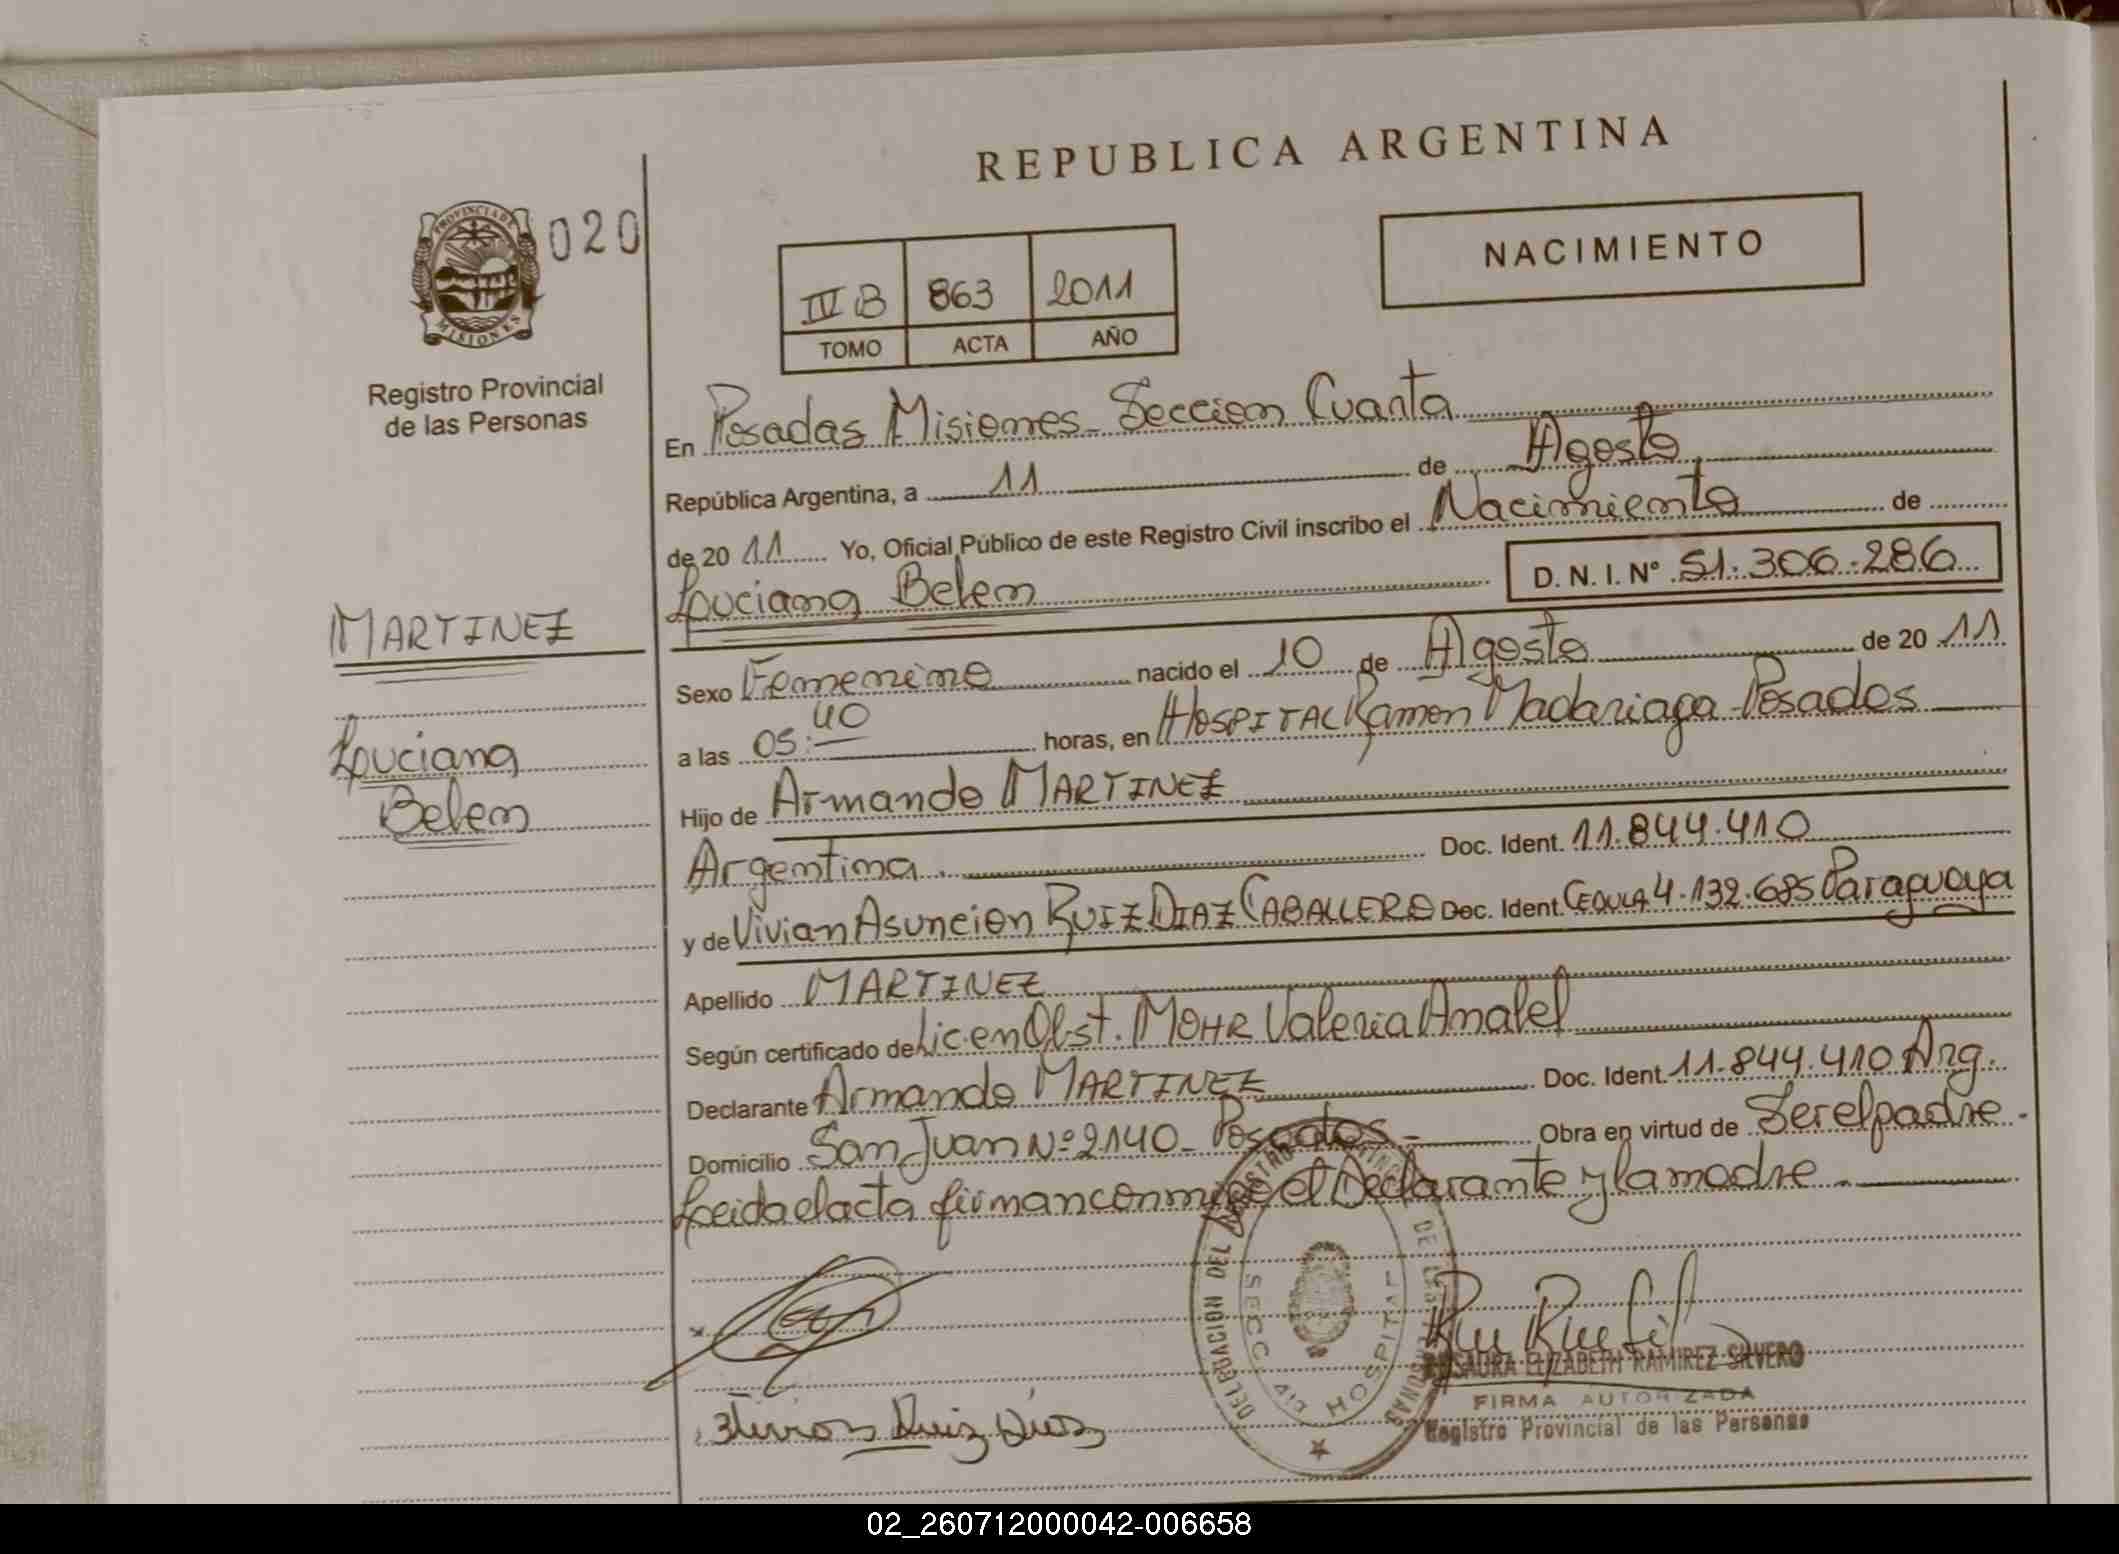 REPUBLICA ARGENTINA
PROVINCIA DE
MISIONES
020
NACIMIENTO
IV B 863 2011
TOMO ACTA AÑO
Registro Provincial
de las Personas
En Posadas Misiones - Seccion Cuarta
República Argentina, a 11 de Agosto
de 20 11 Yo, Oficial Público de este Registro Civil inscribo el Nacimiento de
Louciana Belem D. N. I. Nº 51.306.286
MARTINEZ
Louciana
Belem
Sexo Femenino nacido el 10 de Agosto de 20 11
a las 05:40 horas, en HOSPITAL Ramon Madariaga - Posadas
Hijo de Armando MARTINEZ
Argentina. Doc. Ident. 11.844.410
y de Vivian Asuncion RUIZ DIAZ CABALLERO Doc. Ident. CEDULA 4.132.685 Paraguaya
Apellido MARTINEZ
Según certificado de Lic. en Obst. MOHR Valeria Anabel
Declarante Armando MARTINEZ Doc. Ident. 11.844.410 Arg.
Domicilio San Juan Nº 2140 - Posadas - Obra en virtud de Ser el padre.
Leida el acta firman conmigo el Declarante y la madre.
DELEGACION DEL REGISTRO PROVINCIAL DE LAS PERSONAS
SECC. 4ta HOSPITAL
Ruiz Diaz
ROSAURA ELIZABETH RAMIREZ SILVERO
FIRMA AUTORIZADA
Registro Provincial de las Personas
02_260712000042-006658